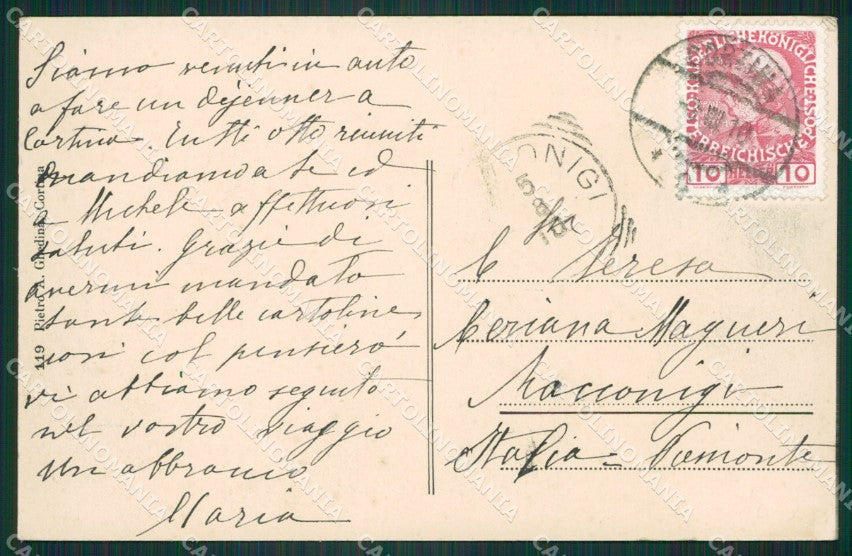 Siamo venuti in auto
a fare un dejenner a
Cortina. Tutti otto riuniti
mandiamo a te ed
a Michele affettuosi
saluti. Grazie di
avermi mandato
tante belle cartoline
noi col pensiero
vi abbiamo seguito
nel vostro viaggio
Un abbraccio
Maria
119 Pietro A. Ghedina, Cortina
ONIGI
5 8
10
KAISERLICHE KÖNIGLICHE
ÖSTERREICHISCHE
10 10
Teresa
Ceriana Mayneri
Racconigi
Italia = Piemonte
CARTOLINOMANIA